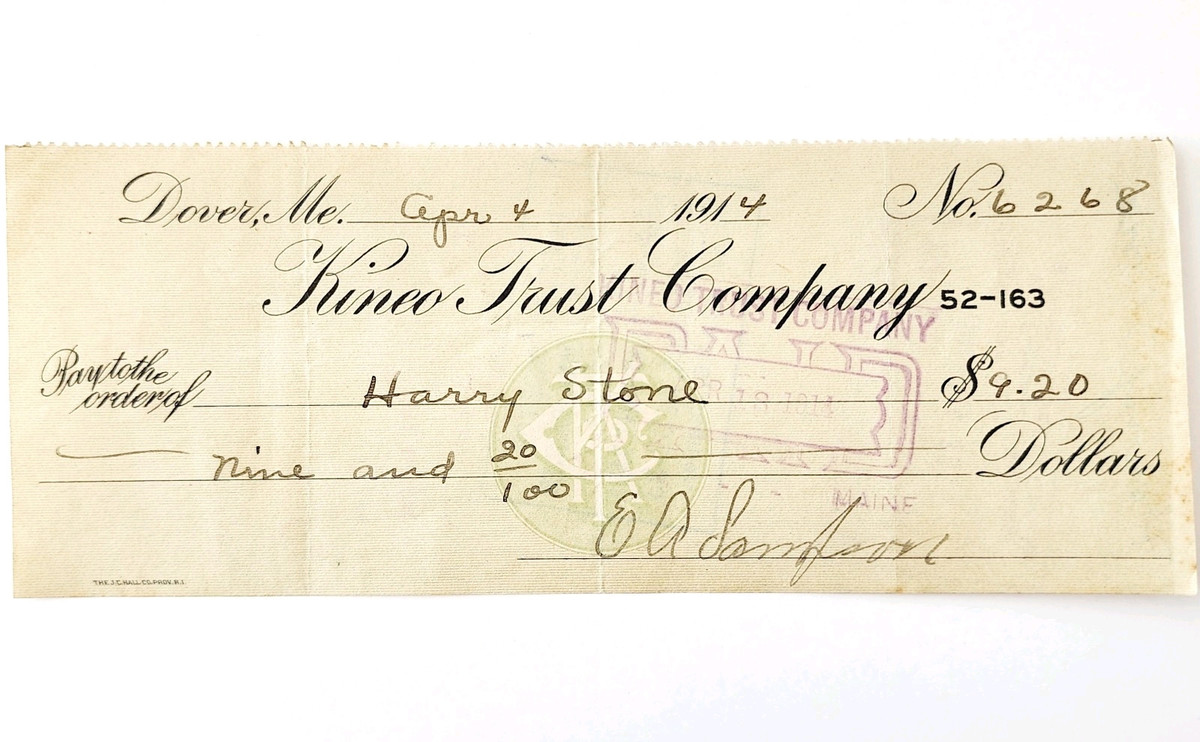 Dover, Me. Apr 4 1914 No. 6268
Kineo Trust Company 52-163
KINEO TRUST COMPANY
PAID
APR 18 1914
MAINE
Pay to the order of Harry Stone $9.20
Nine and 20/100 Dollars
E A Sampson
THE J.C. HALL CO. PROV. R.I.